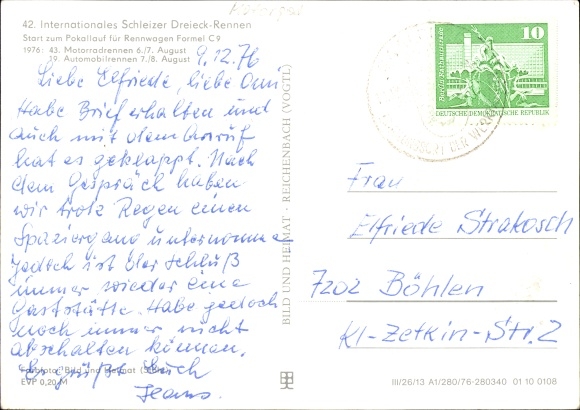 42. Internationales Schleizer Dreieck-Rennen
Start zum Pokallauf für Rennwagen Formel C9
1976: 43. Motorradrennen 6./7. August
19. Automobilrennen 7./8. August
9.12.76
Liebe Elfriede, liebe Omi
Habe Brief erhalten und
auch mit dem Anruf
hat es geklappt. Nach
dem Gespräch haben
wir trotz Regen einen
Spaziergang unternomme
Jedoch ist der Schluß
immer wieder eine
Gaststätte. Habe jedoch
noch immer nicht
abschalten können.
Es grüßt Euch
Hans.
Farbfoto: Bild und Heimat
EVP 0,20 M
BILD UND HEIMAT · REICHENBACH (VOGTL)
Berlin Rathausstraße
10
DEUTSCHE DEMOKRATISCHE REPUBLIK
Frau
Elfriede Strakosch
7202 Böhlen
Kl-Zetkin-Str. 2
III/26/13 A1/280/76-280340 01 10 0108